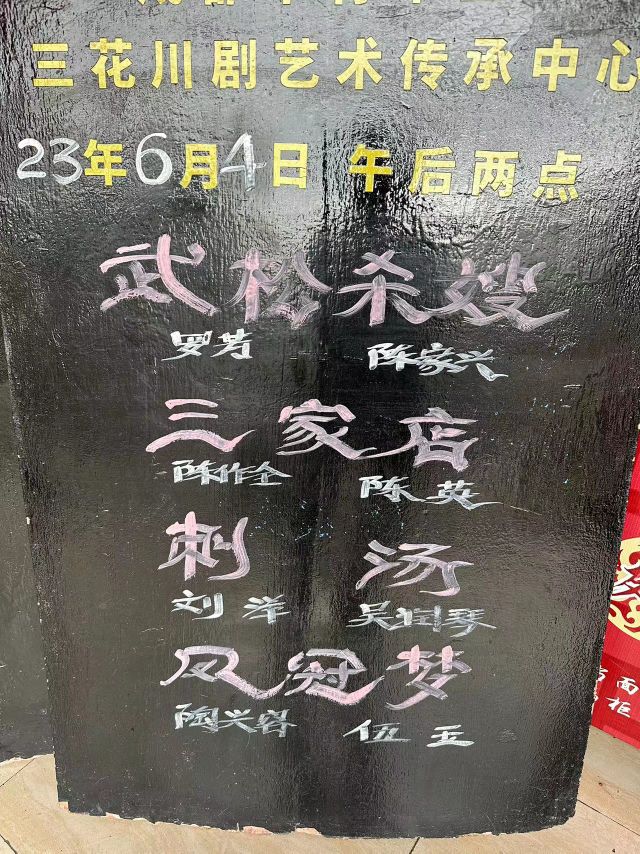 三花川剧艺术传承中心
23年6月4日 午后两点
武松杀嫂
罗芳 陈家兴
三家店
陈作全 陈英
刺汤
刘洋 吴润琴
凤冠梦
陶兴容 伍玉